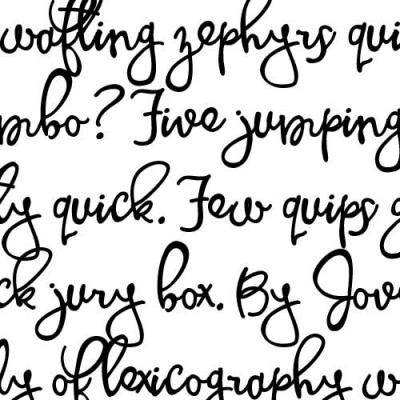 wafting zephyrs qui
mbo? Five jumping
ly quick. Few quips g
ck jury box. By Jov
y of lexicography w